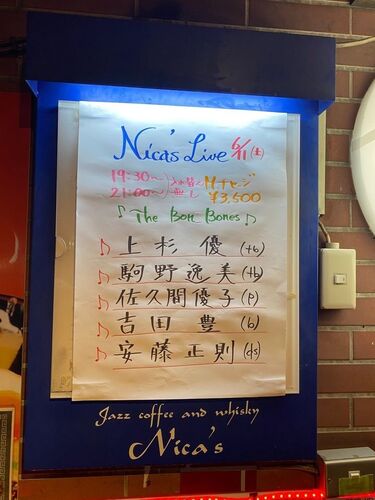 Nica's Live 6/11(土)
19:30~ 入れ替え Mチャージ
21:00~ 無し ¥3,500
♪The Bon Bones♪
♪上杉 優(tb)
♪駒野逸美(tb)
♪佐久間優子(p)
♪吉田 豊(b)
♪安藤正則(ds)
Jazz coffee and whisky
Nica's